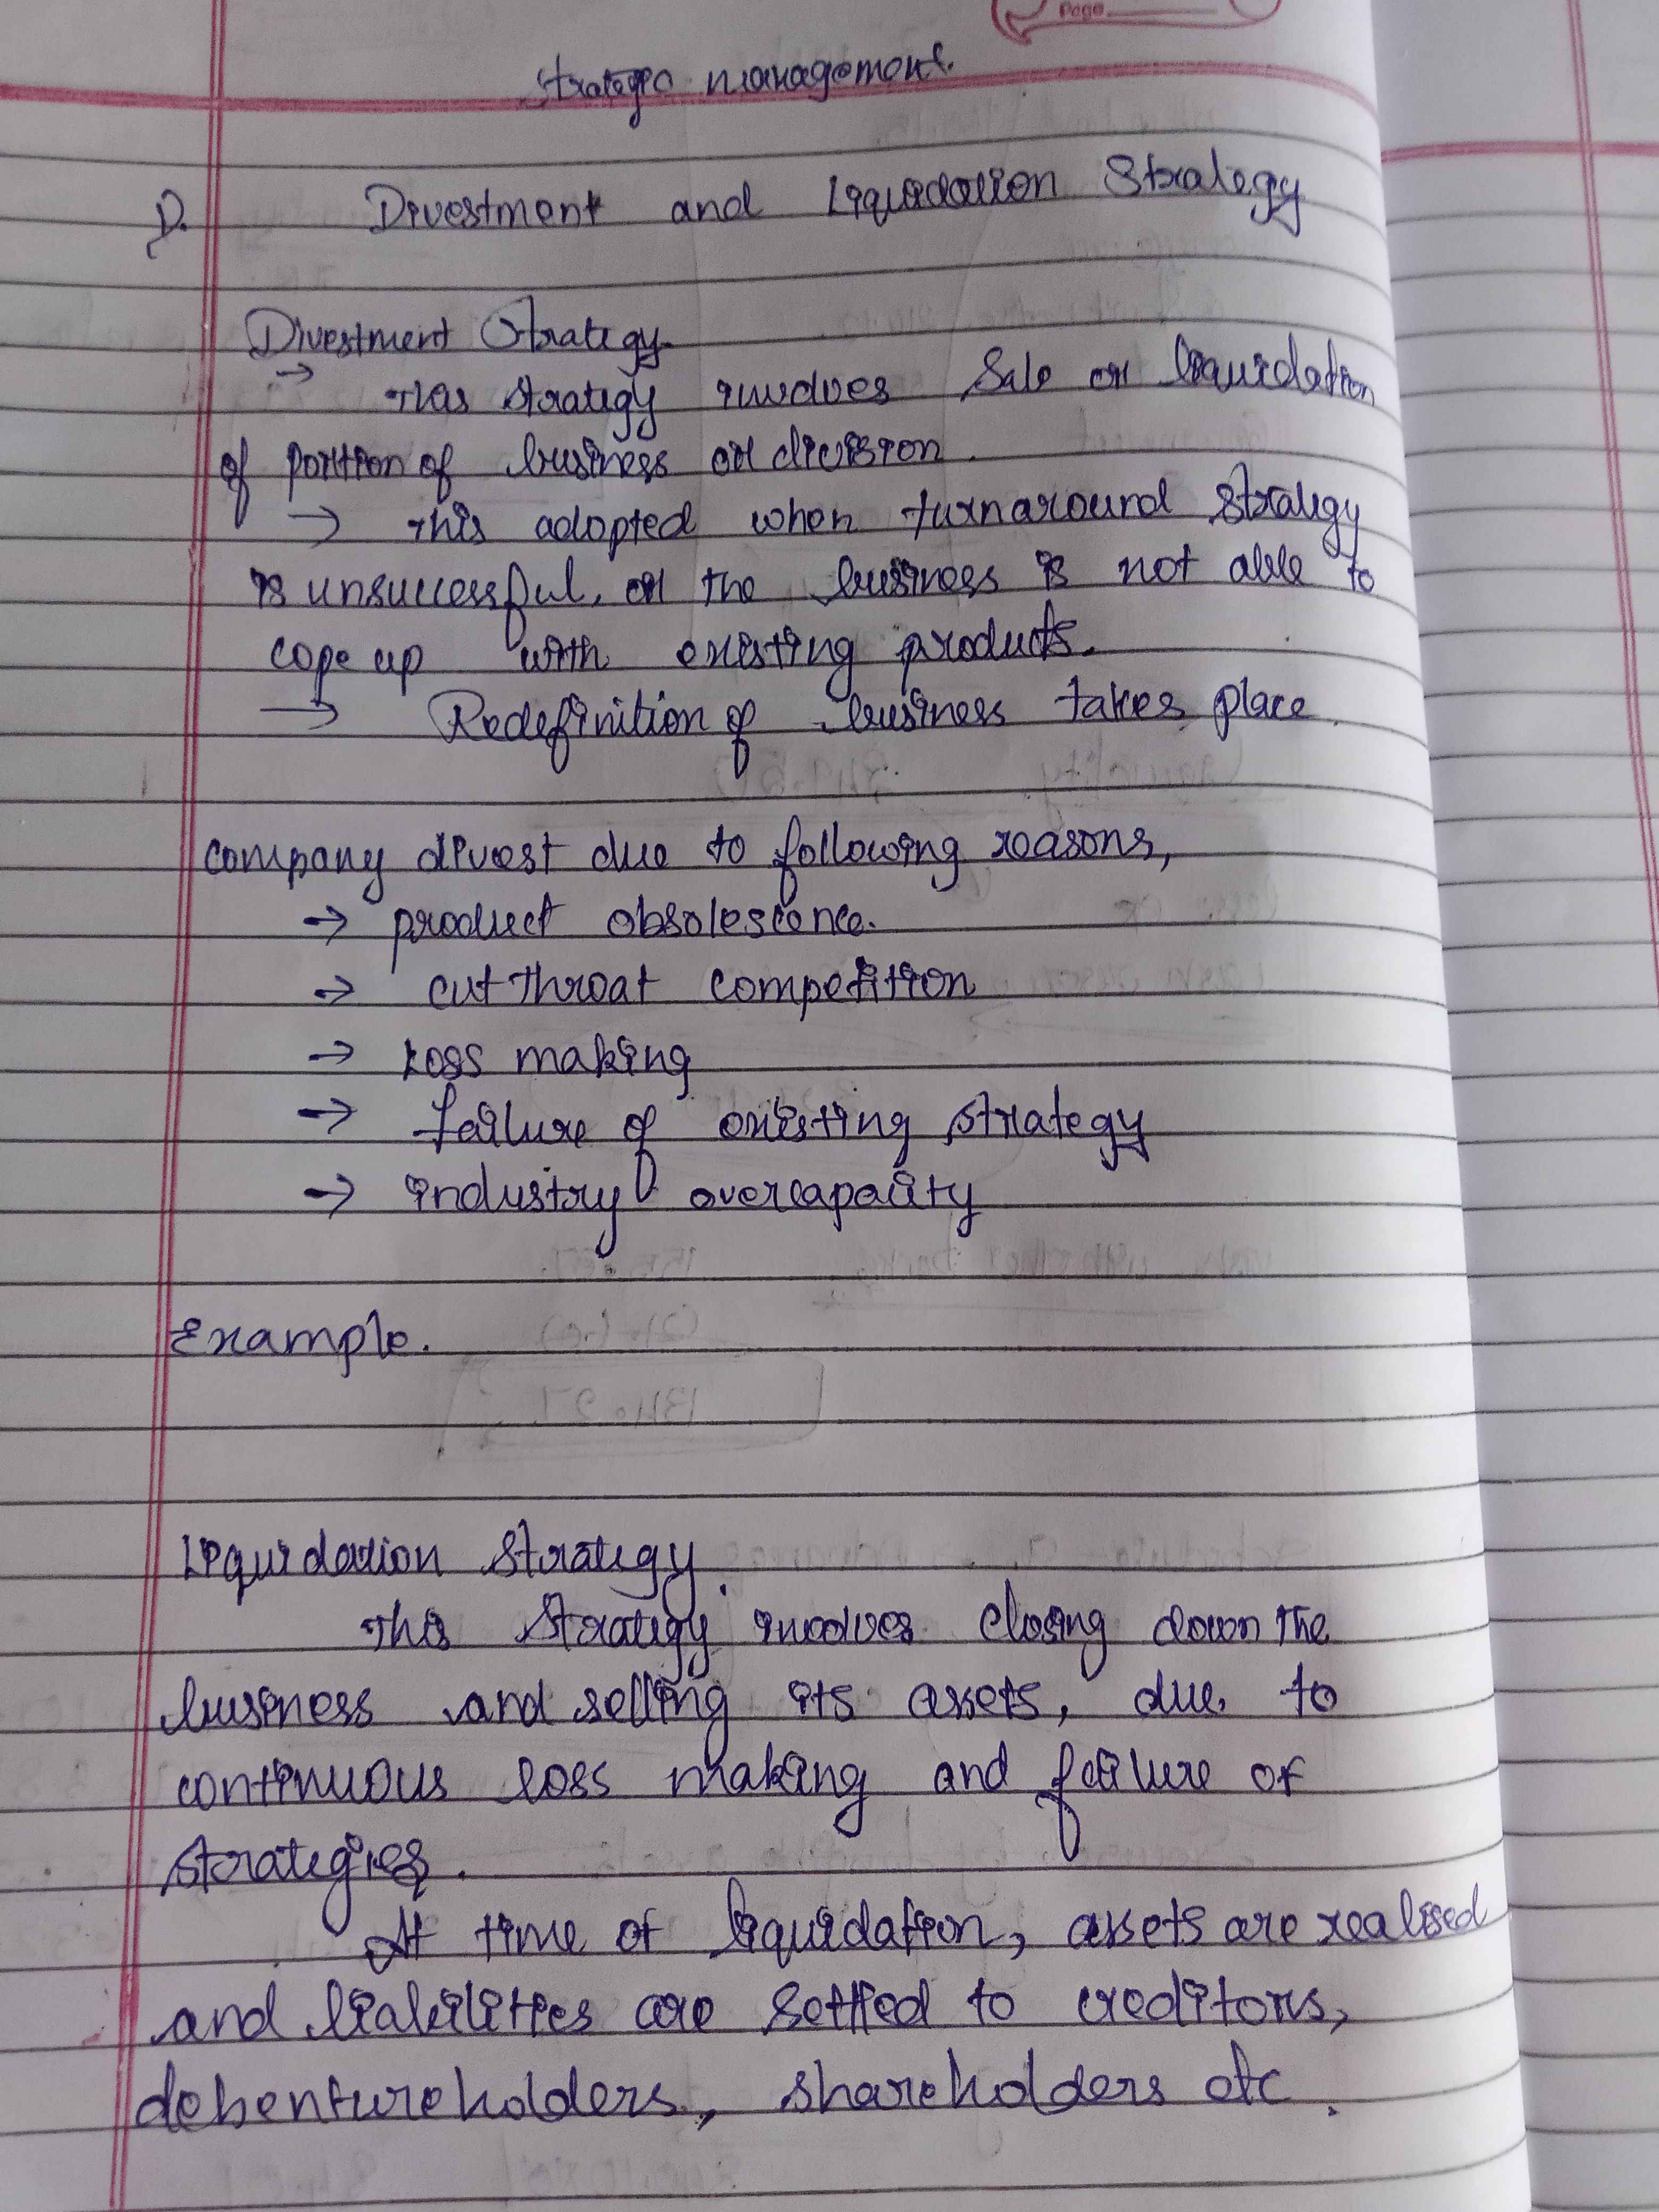 Page
Strategic management.
D. Divestment and Liquidation Strategy
Divestment Strategy.
→ This strategy involves Sale or liquidation
of portion of business or division.
→ This adopted when turnaround strategy
is unsuccessful, or the business is not able to
cope up with existing products.
→ Redefinition of business takes place.
company divest due to following reasons,
→ product obsolescence.
→ cut throat competition
→ Loss making
→ failure of existing strategy
→ industry overcapacity
Example.
Liquidation Strategy.
This Strategy involves closing down the
business and selling its assets, due to
continuous loss making and failure of
strategies.
At time of liquidation, assets are realised
and liabilities are settled to creditors,
debentureholders, shareholders etc.